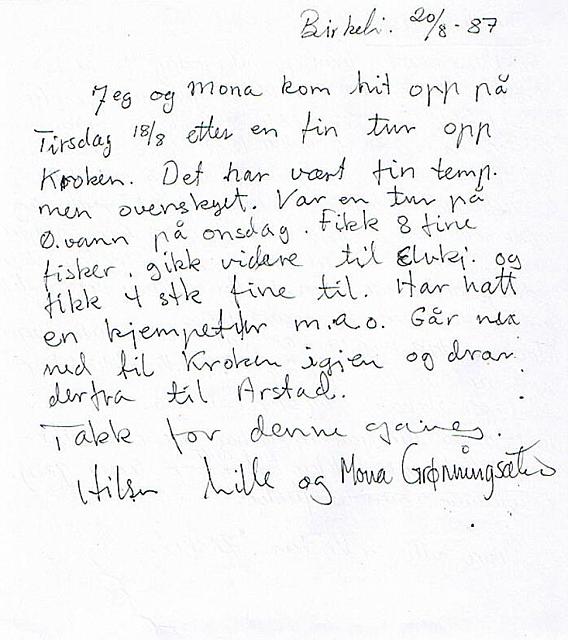 Birkeli. 20/8-87
Jeg og Mona kom hit opp på
Tirsdag 18/8 etter en fin tur opp
Kroken. Det har vært fin temp.
men overskyet. Var en tur på
Ø.vann på onsdag. Fikk 8 fine
fisker. gikk videre til og
fikk 4 stk fine til. Har hatt
en kjempetur m.a.o. Går nu
ned til Kroken igjen og drar
derfra til Arstad.
Takk for denne gang.
Hilsen Lille og Mona Grønningsæter